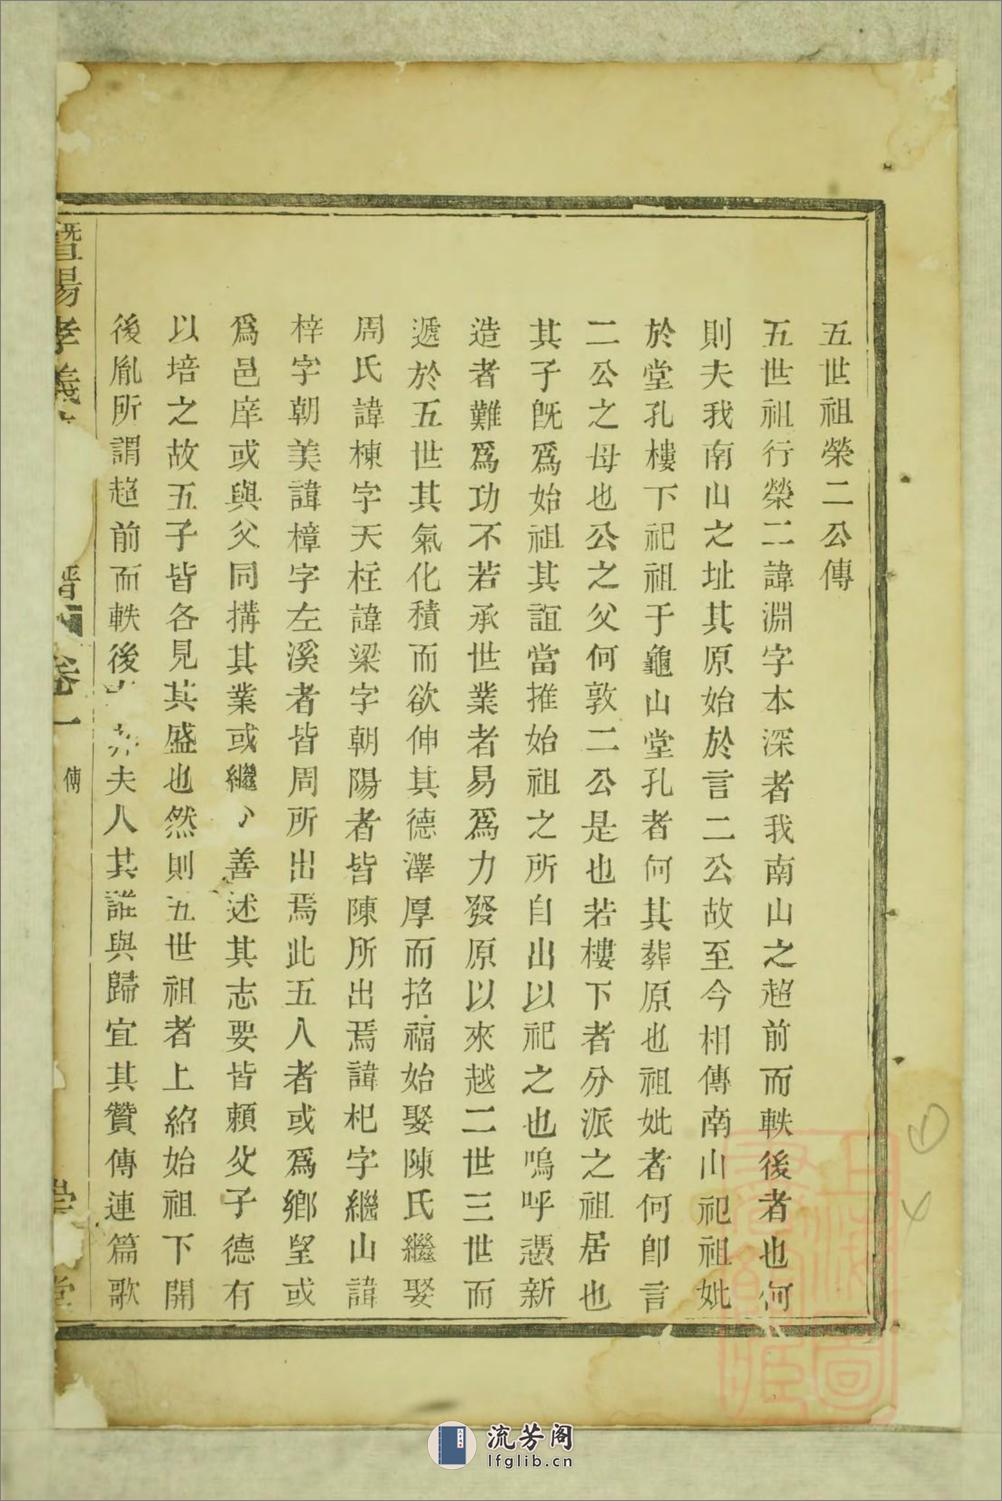 五世祖榮二公傳
五世祖行榮二諱淵字本深者我南山之超前而軼後者也何
則夫我南山之址其原始於言二公故至今相傳南山祀祖妣
於堂孔樓下祀祖于龜山堂孔者何其葬原也祖妣者何卽言
二公之母也公之父何敦二公是也若樓下者分派之祖居也
其子旣爲始祖其誼當推始祖之所自出以祀之也嗚呼憑新
造者難爲功不若承世業者易爲力發原以來越二世三世而
遞於五世其氣化積而欲伸其德澤厚而招福始娶陳氏繼娶
周氏諱棟字天枉諱梁字朝陽者皆陳所出焉諱杞字繼山諱
梓字朝美諱樟字左溪者皆周所出焉此五人者或爲鄉望或
爲邑庠或與父同搆其業或繼善述其志要皆賴父子德有
以培之故五子皆各見其盛也然則五世祖者上紹始祖下開
後胤所謂超前而軼後夫人其誰與歸宜其贊傳連篇歌
暨陽孝義 譜 卷一 傳 堂
上海圖書館藏
流芳阁
lfglib.cn